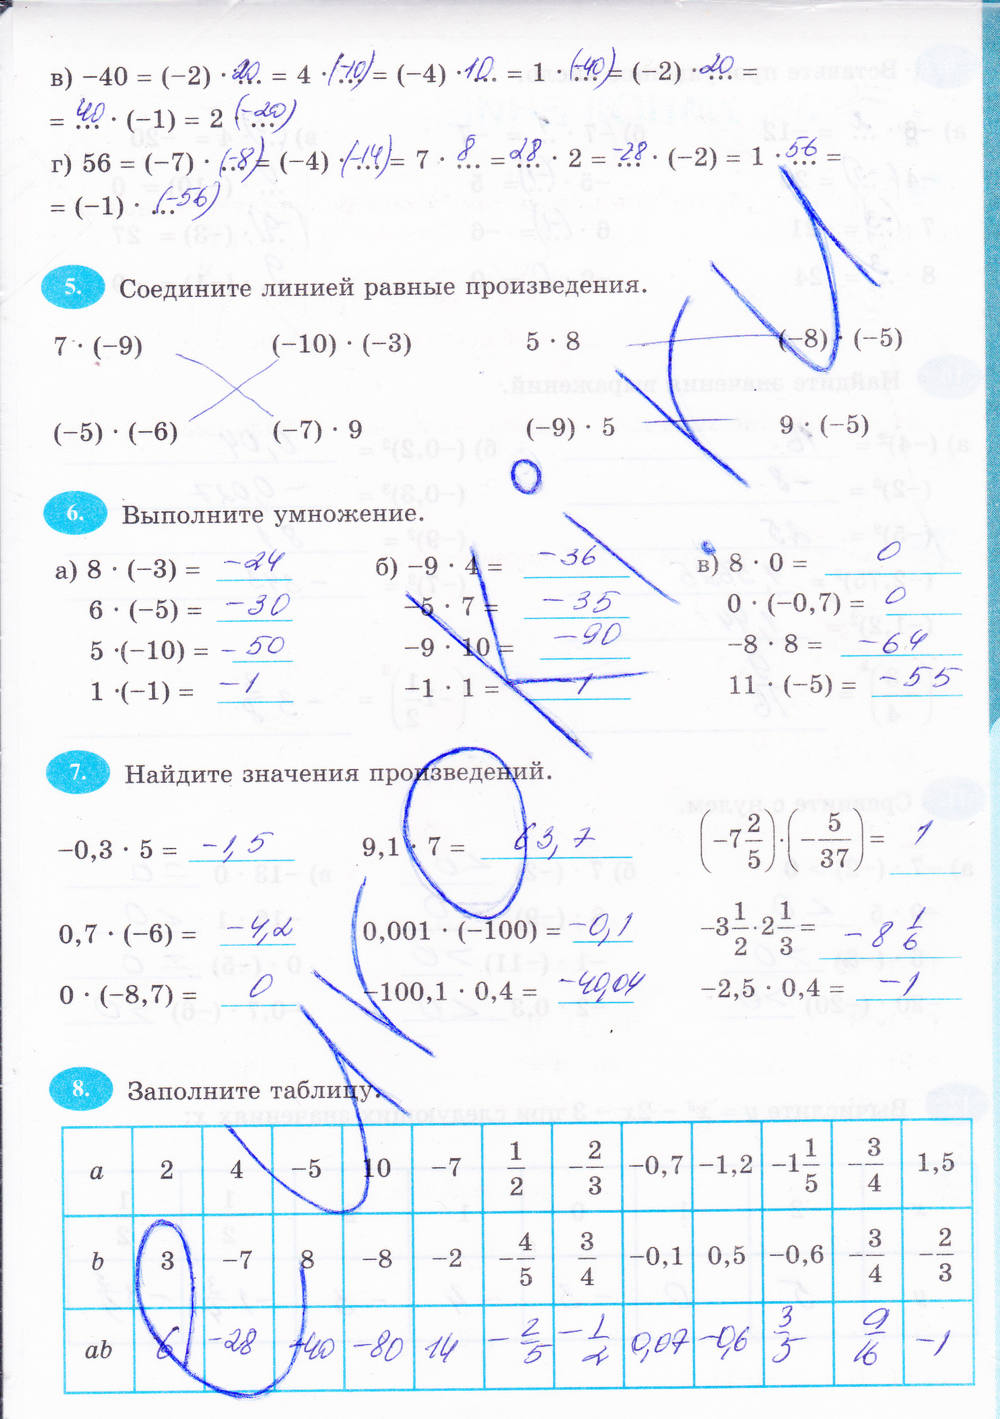 в) −40 = (−2) · 20 = 4 · (−10) = (−4) · 10 = 1 · (−40) = (−2) · 20 =
= 40 · (−1) = 2 · (−20)
г) 56 = (−7) · (−8) = (−4) · (−14) = 7 · 8 = 28 · 2 = −28 · (−2) = 1 · 56 =
= (−1) · (−56)
5. Соедините линией равные произведения.
7 · (−9) (−10) · (−3) 5 · 8 (−8) · (−5)
(−5) · (−6) (−7) · 9 (−9) · 5 9 · (−5)
6. Выполните умножение.
а) 8 · (−3) = −24 б) −9 · 4 = −36 в) 8 · 0 = 0
6 · (−5) = −30 −5 · 7 = −35 0 · (−0,7) = 0
5 ·(−10) = −50 −9 · 10 = −90 −8 · 8 = −64
1 ·(−1) = −1 −1 · 1 = −1 11 · (−5) = −55
7. Найдите значения произведений.
−0,3 · 5 = −1,5 9,1 · 7 = 63,7 (−7 2/5) · (−5/37) = 1
0,7 · (−6) = −4,2 0,001 · (−100) = −0,1 −3 1/2 · 2 1/3 = −8 1/6
0 · (−8,7) = 0 −100,1 · 0,4 = −40,04 −2,5 · 0,4 = −1
8. Заполните таблицу.
a 2 4 −5 10 −7 1/2 −2/3 −0,7 −1,2 −1 1/5 −3/4 1,5
b 3 −7 8 −8 −2 −4/5 3/4 −0,1 0,5 −0,6 −3/4 −2/3
ab 6 −28 −40 −80 14 −2/5 −1/2 0,07 −0,6 3/5 9/16 −1